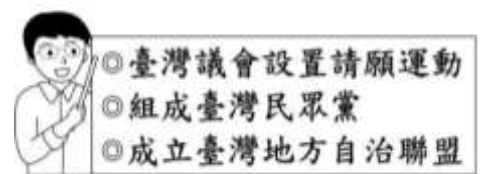 ◎臺灣議會設置請願運動
◎組成臺灣民眾黨
◎成立臺灣地方自治聯盟